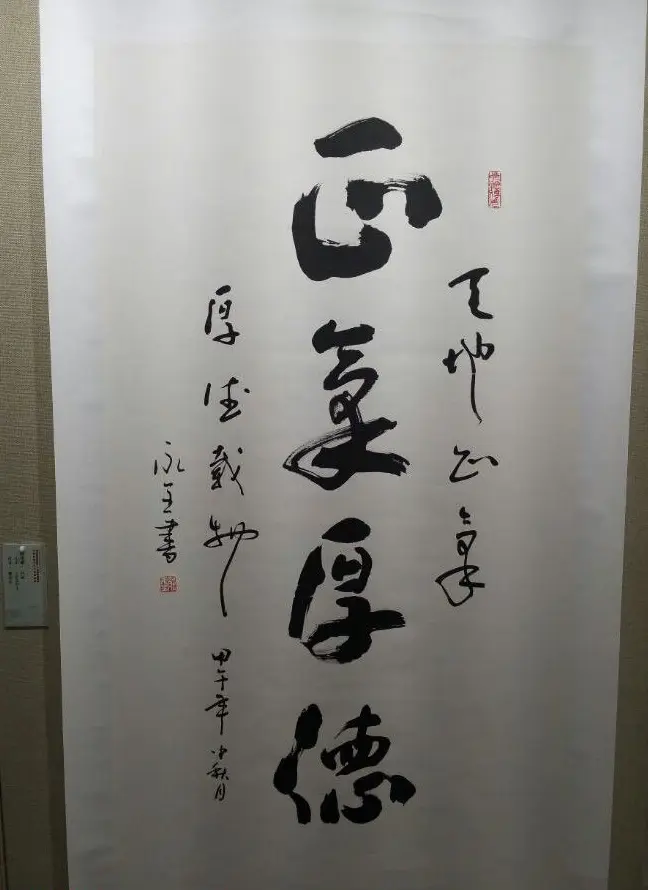 天地正氣
正氣厚德
厚德載物 甲午年中秋月
永玉書